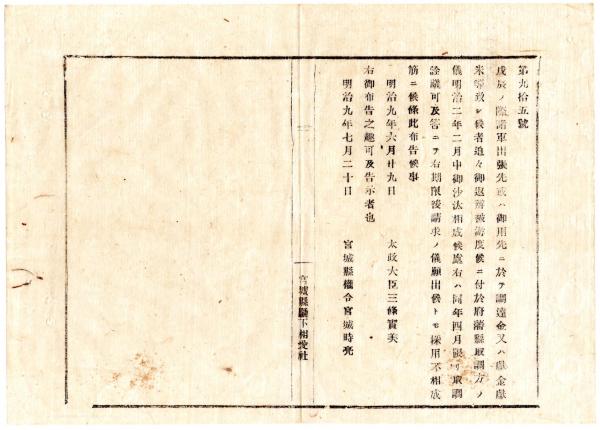 第九拾五號
戊辰ノ際諸軍出張先或ハ御用先ニ於テ調達金又ハ獻金獻
米等致シ候者追々御返辨被謝度候ニ付於府藩縣取調方ノ
儀明治二年二月中御沙汰相成候處右ハ同年四月限可取調
詮議可及筈ニテ右期限後請求ノ儀願出候トモ採用不相成
筋ニ候條此布告候事
明治九年六月廿九日 太政大臣三條實美
右御布告之趣可及告示者也
明治九年七月二十日 宮城縣權令宮城時亮
宮城縣縣下相愛社